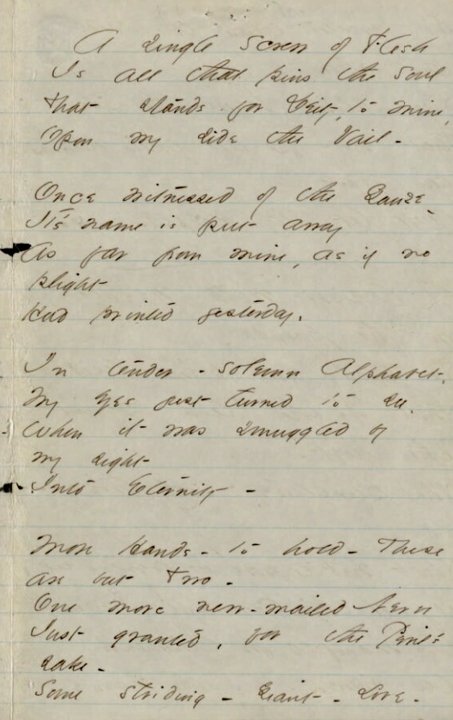 A single Screw of Flesh
Is all that pins the Soul
That stands for Deity, to mine,
Upon my side the Vail -
Once witnessed of the Gauze -
It's name is put away
As far from mine, as if no
plight
Had printed yesterday,
In tender - solemn Alphabet,
My eyes just turned to see,
When it was smuggled by
my sight
Into Eternity -
More Hands - to hold - These
are but Two -
One more new-mailed Nerve
Just granted, for the Peril's
sake -
Some striding - Giant - Love -